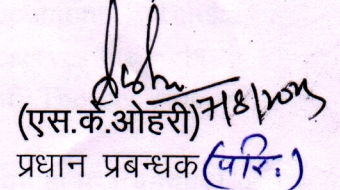 (एस.के.ओहरी) 7/8/2023
प्रधान प्रबन्धक (परि.)